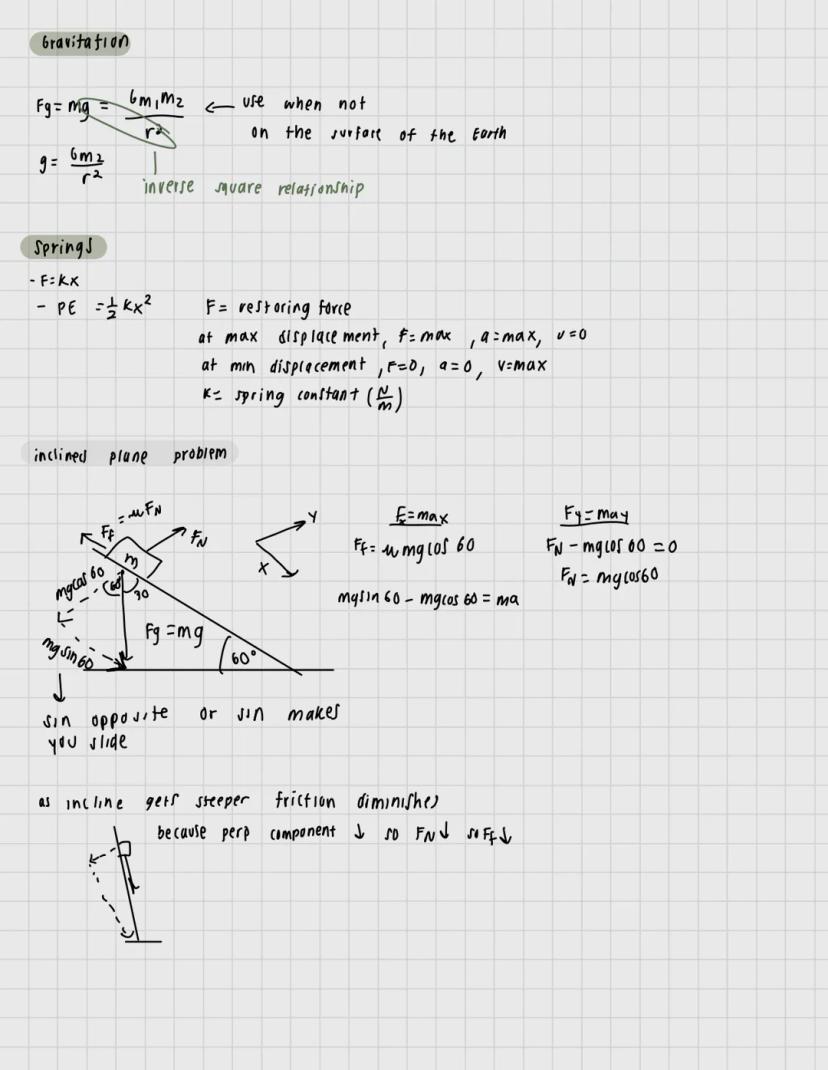 Gravitation
Fg = mg = Gm₁m₂ / r² ← use when not
on the surface of the Earth
g = Gm₂ / r²
inverse square relationship
Springs
- F = kx
- PE = ½ kx²
F = restoring force
at max displacement, F = max , a = max, v = 0
at min displacement , F = 0, a = 0, v = max
K = spring constant (N/m)
inclined plane problem
Ff = μFN
FN
m
mgcos 60
60°
30
mg sin 60
Fg = mg
60°
Y
X
Fx = max
Ff = μ mg cos 60
mgsin 60 - mgcos 60 = ma
Fy = may
FN - mgcos 60 = 0
FN = mgcos60
sin opposite or sin makes
you slide
as incline gets steeper friction diminishes
because perp component ↓ so FN ↓ so Ff ↓